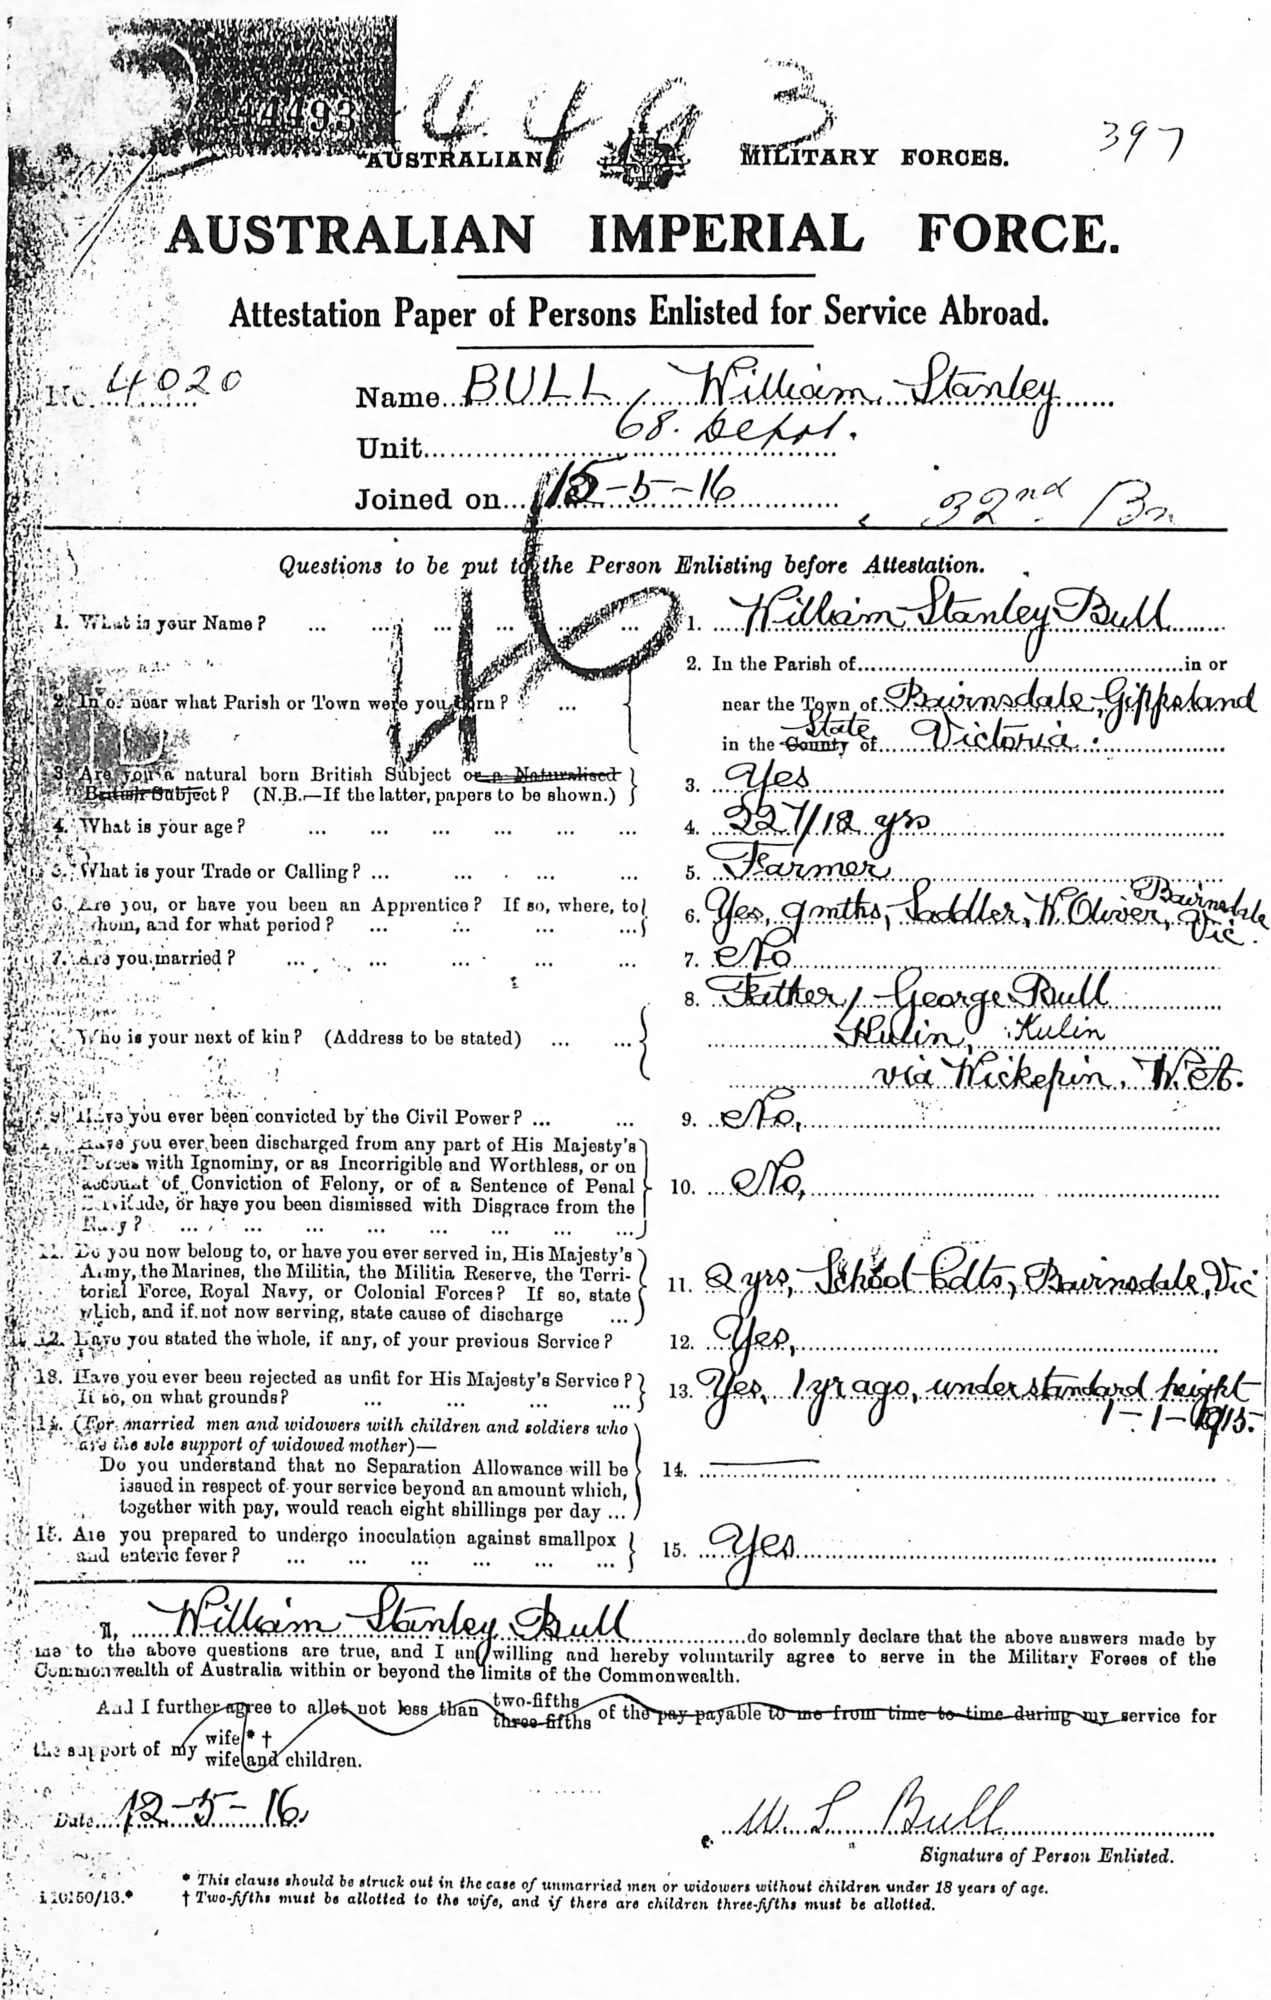 44493
4493
397
AUSTRALIAN MILITARY FORCES.
AUSTRALIAN IMPERIAL FORCE.
Attestation Paper of Persons Enlisted for Service Abroad.
No. 4020
Name BULL, William Stanley
Unit 68. Depot.
Joined on 15-5-16
32nd Bn
Questions to be put to the Person Enlisting before Attestation.
1. What is your Name? ... 1. William Stanley Bull
2. In the Parish of ... in or
2. In or near what Parish or Town were you born? ... near the Town of Bairnsdale, Gippsland
in the County State of Victoria.
3. Are you a natural born British Subject or a Naturalised 3. Yes
British Subject? (N.B.—If the latter, papers to be shown.)
4. What is your age? ... 4. 22 7/12 yrs
5. What is your Trade or Calling? ... 5. Farmer
6. Are you, or have you been an Apprentice? If so, where, to 6. Yes, 9 mths, Saddler, W. Oliver, Bairnsdale
whom, and for what period? ... Vic.
7. Are you married? ... 7. No
8. Father, George Bull
Who is your next of kin? (Address to be stated) ... Kulin, Kulin
via Wickepin, W.A.
9. Have you ever been convicted by the Civil Power? ... 9. No,
Have you ever been discharged from any part of His Majesty's
Forces with Ignominy, or as Incorrigible and Worthless, or on
account of Conviction of Felony, or of a Sentence of Penal 10. No,
Servitude, or have you been dismissed with Disgrace from the
Navy? ...
11. Do you now belong to, or have you ever served in, His Majesty's
Army, the Marines, the Militia, the Militia Reserve, the Terri-
torial Force, Royal Navy, or Colonial Forces? If so, state 11. 2 yrs, School Cdts, Bairnsdale, Vic
which, and if not now serving, state cause of discharge ...
12. Have you stated the whole, if any, of your previous Service? 12. Yes,
13. Have you ever been rejected as unfit for His Majesty's Service? 13. Yes, 1 yr ago, under standard height
If so, on what grounds? ... 1-1-1915.
14. (For married men and widowers with children and soldiers who
are the sole support of widowed mother)—
Do you understand that no Separation Allowance will be 14. —
issued in respect of your service beyond an amount which,
together with pay, would reach eight shillings per day ...
15. Are you prepared to undergo inoculation against smallpox 15. Yes
and enteric fever? ...
I, William Stanley Bull do solemnly declare that the above answers made by
me to the above questions are true, and I am willing and hereby voluntarily agree to serve in the Military Forces of the
Commonwealth of Australia within or beyond the limits of the Commonwealth.
And I further agree to allot not less than two-fifths three-fifths of the pay payable to me from time to time during my service for
the support of my wife * † wife and children.
Date 12-5-16
W S Bull
Signature of Person Enlisted.
* This clause should be struck out in the case of unmarried men or widowers without children under 18 years of age.
† Two-fifths must be allotted to the wife, and if there are children three-fifths must be allotted.